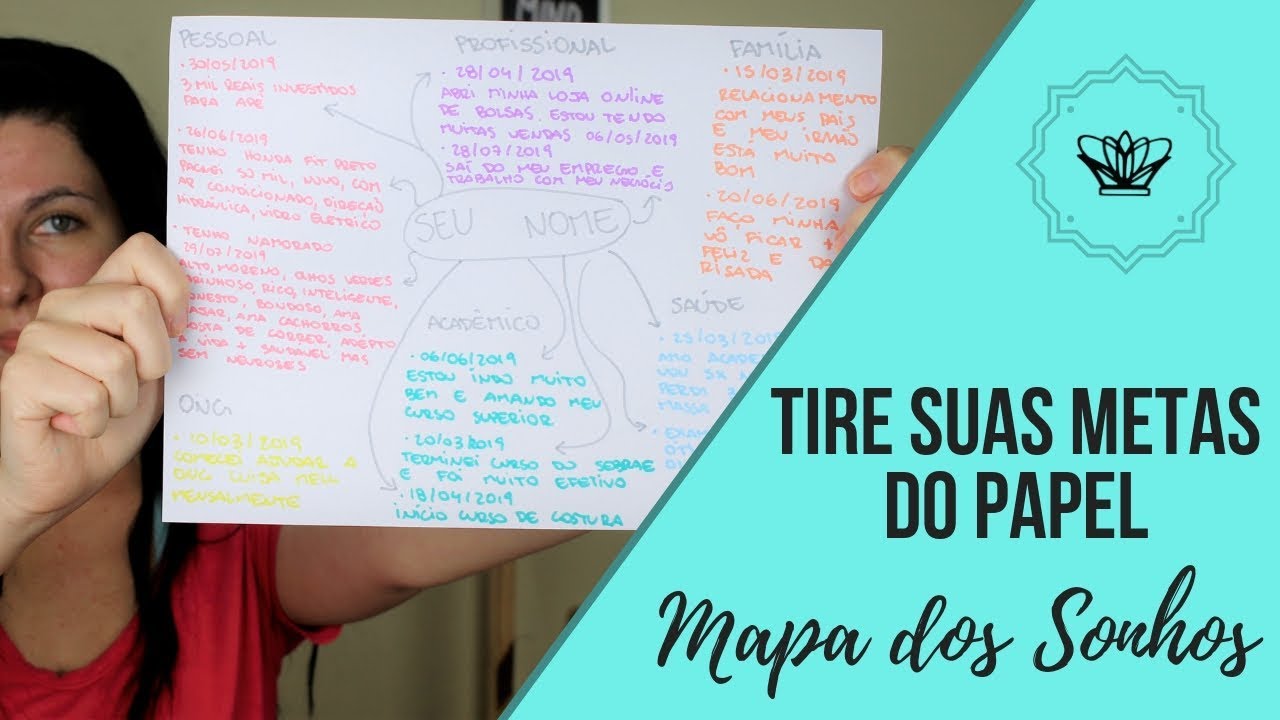 MIND
PESSOAL
• 30/05/2019
3 MIL REAIS INVESTIDOS
PARA APÊ
• 26/06/2019
TENHO HONDA FIT PRETO
PAGUEI 50 MIL, NOVO, COM
AR CONDICIONADO, DIREÇÃO
HIDRÁULICA, VIDRO ELETRICO
• TENHO NAMORADO
29/07/2019
ALTO, MORENO, OLHOS VERDES
CARINHOSO, RICO, INTELIGENTE,
HONESTO, BONDOSO, AMA
VIAJAR, AMA CACHORROS
GOSTA DE CORRER, ADEPTO
A VIDA + SAUDAVEL MAS
SEM NEUROSES
ONG
• 10/03/2019
COMECEI AJUDAR A
ONG
MENSALMENTE
PROFISSIONAL
• 28/04/2019
ABRI MINHA LOJA ONLINE
DE BOLSAS. ESTOU TENDO
MUITAS VENDAS 06/05/2019
• 28/07/2019
SAÍ DO MEU EMPREGO E
TRABALHO COM MEU NEGÓCIO
SEU NOME
ACADÊMICO
• 06/06/2019
ESTOU INDO MUITO
BEM E AMANDO MEU
CURSO SUPERIOR
• 20/03/2019
TERMINEI CURSO DO SEBRAE
E FOI MUITO EFETIVO
• 18/04/2019
INÍCIO CURSO DE COSTURA
FAMÍLIA
• 15/03/2019
RELACIONAMENTO
COM MEUS PAIS
E MEU IRMÃO
ESTÁ MUITO
BOM
• 20/06/2019
FAÇO MINHA
VÔ FICAR +
FELIZ E DA
RISADA
SAÚDE
• 25/03/2019
AMO ACADE
VOU 5X
PERDI
MASSA
TIRE SUAS METAS
DO PAPEL
Mapa dos Sonhos